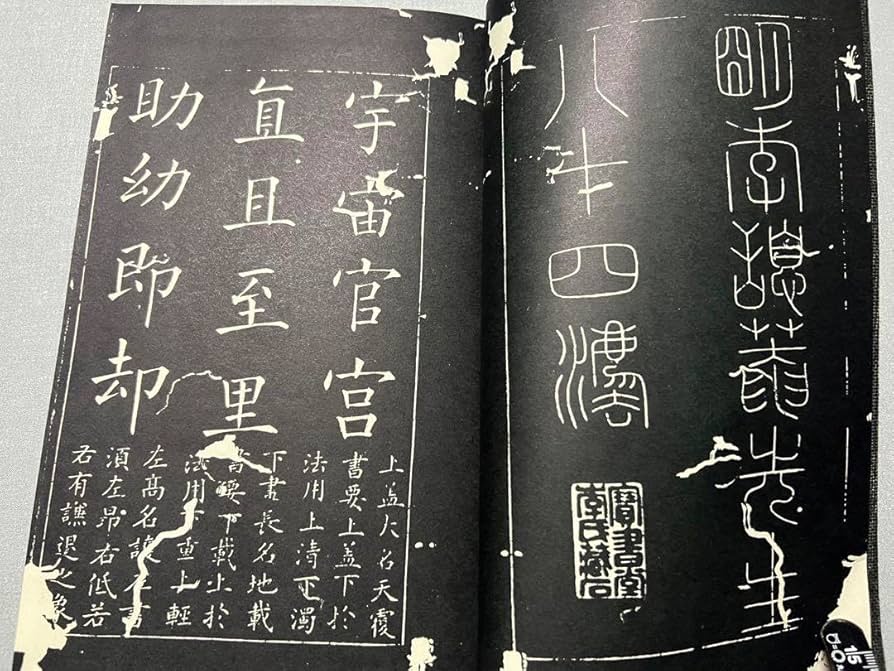 明李菴先生
八十四灋
寶書堂
李氏藏石
宇宙官宮
直且至里
助幼即却
上蓋大名天覆
書要上蓋下於
法用上清下濁
下畫長名地載
書要下載上於
法用下重上輕
左高名讓左書
須左昂右低若
右有謙退之象